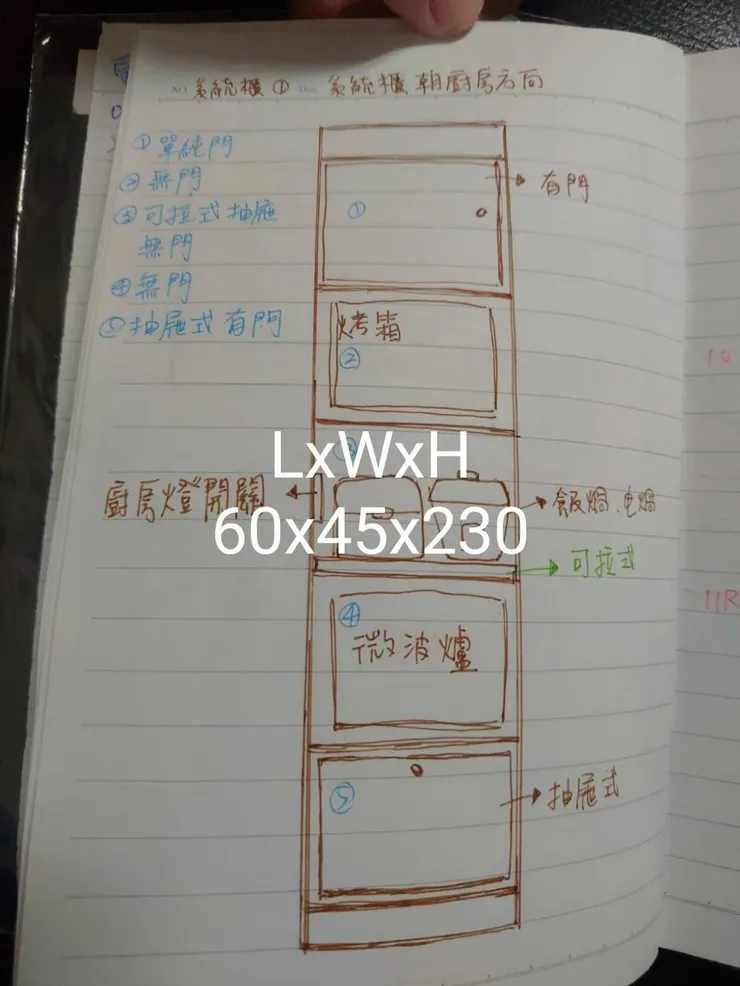 NO. 系統櫃 ① Date 系統櫃朝廚房方向
① 單純門
② 無門
③ 可拉式抽屜
無門
④ 無門
⑤ 抽屜式 有門
①
有門
烤箱
②
③
LxWxH
60x45x230
廚房燈開關
飯鍋、电鍋
可拉式
④
微波爐
⑤
抽屜式
10
11R